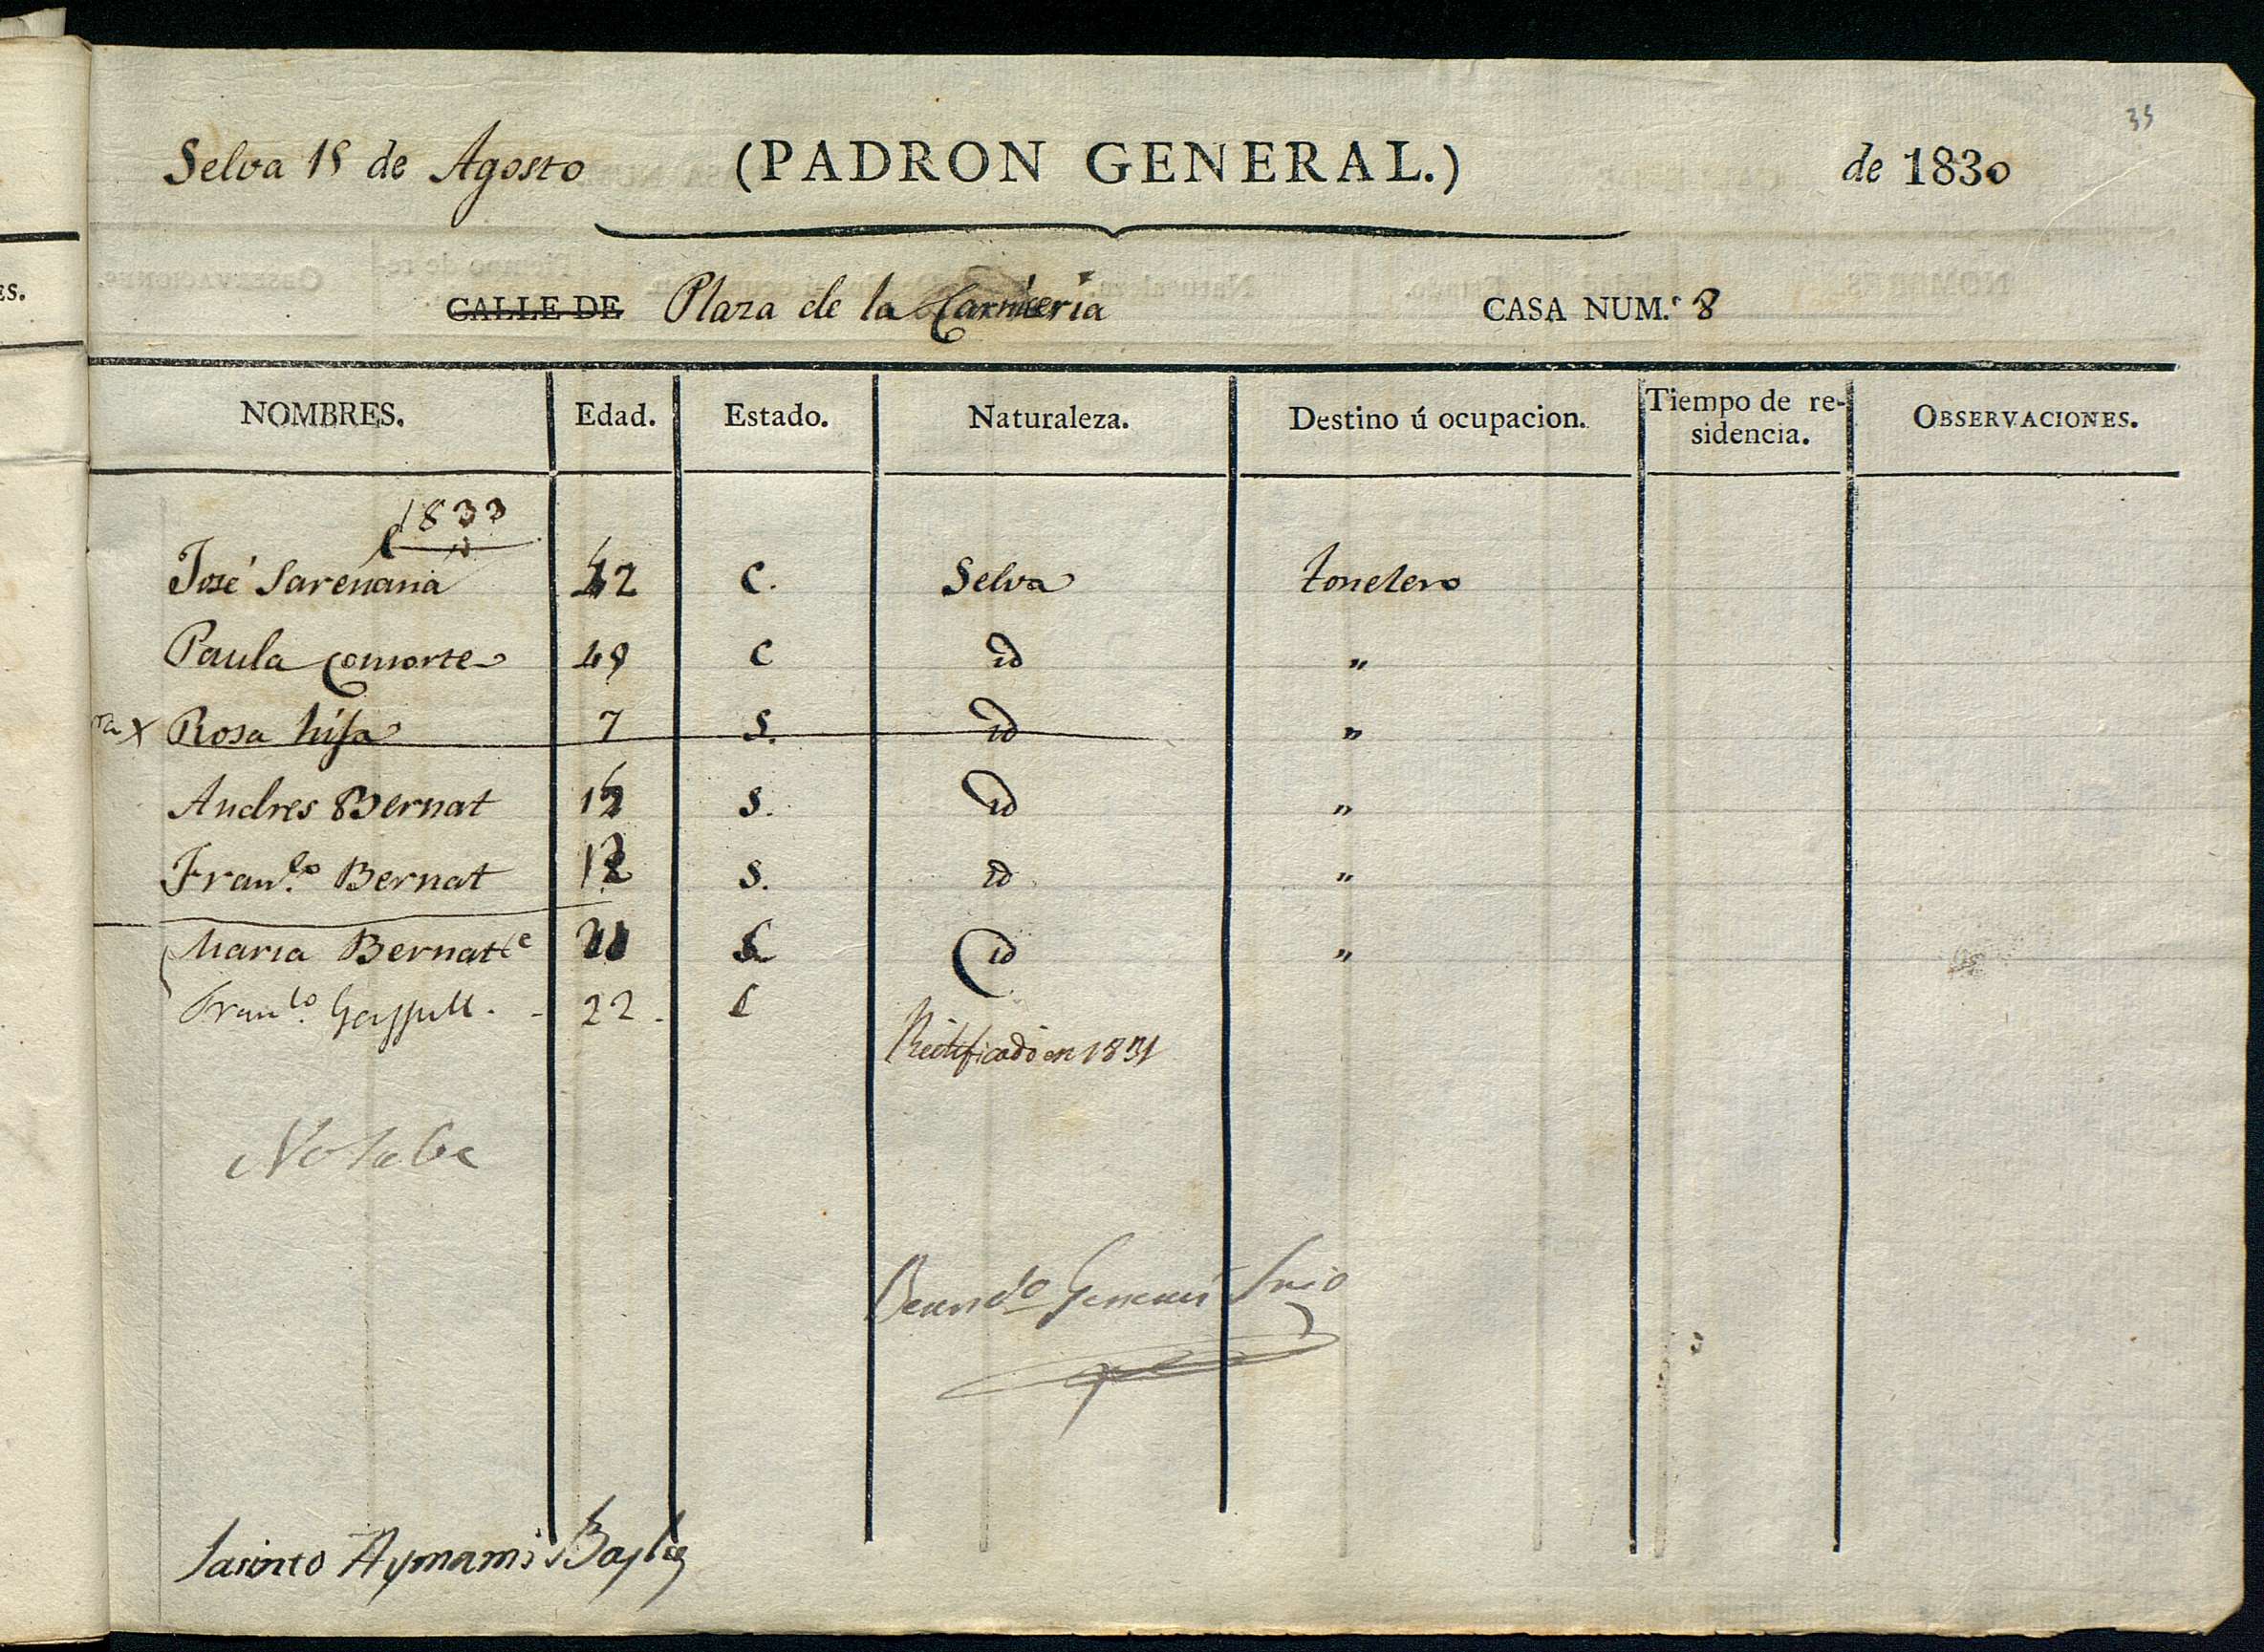 35
Selva 15 de Agosto (PADRON GENERAL.) de 1830
CALLE DE Plaza de la Carniceria CASA NUM.º 8
NOMBRES. Edad. Estado. Naturaleza. Destino ú ocupacion. Tiempo de re- OBSERVACIONES.
sidencia.
1833
José C. Selva tonelero
Paula consorte 48 C id "
Rosa hija 7 S. id "
Andres Bernat S. id "
Fran.co Bernat S. id "
Maria Bernat id "
Fran.co 22 C
Rectificado en 1831
Notabe
Jacinto Aymami Bayle